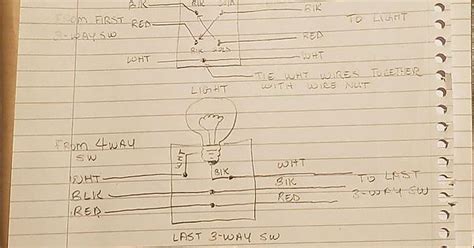 BIK
BIK
FROM FIRST
3-WAY SW
RED
TO LIGHT
BIK
RED
WHT
WHT
TIE WHT WIRES TOGETHER
WITH WIRE NUT
LIGHT
FROM 4WAY
SW
WHT
BIK
WHT
TO LAST
BIK
3-WAY SW
BLK
RED
RED
LAST 3-WAY SW